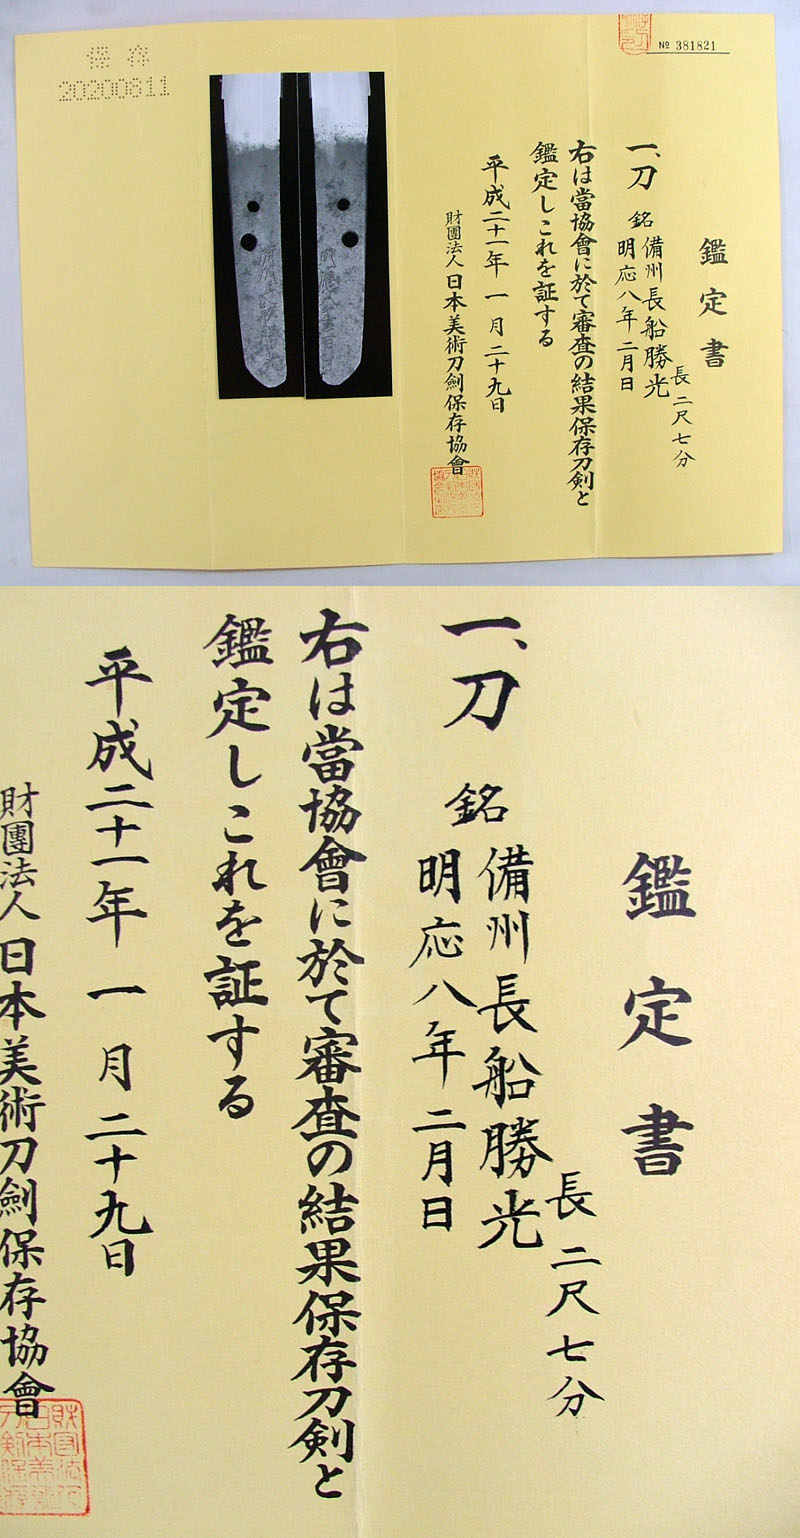 保存
20200811
№ 381821
鑑定書
長二尺七分
一、刀 銘 備州長船勝光
明応八年二月日
右は當協會に於て審査の結果保存刀剣と
鑑定しこれを証する
平成二十一年一月二十九日
財團法人日本美術刀劍保存協會
鑑定書
長二尺七分
一、刀 銘 備州長船勝光
明応八年二月日
右は當協會に於て審査の結果保存刀剣と
鑑定しこれを証する
平成二十一年一月二十九日
財團法人日本美術刀劍保存協會